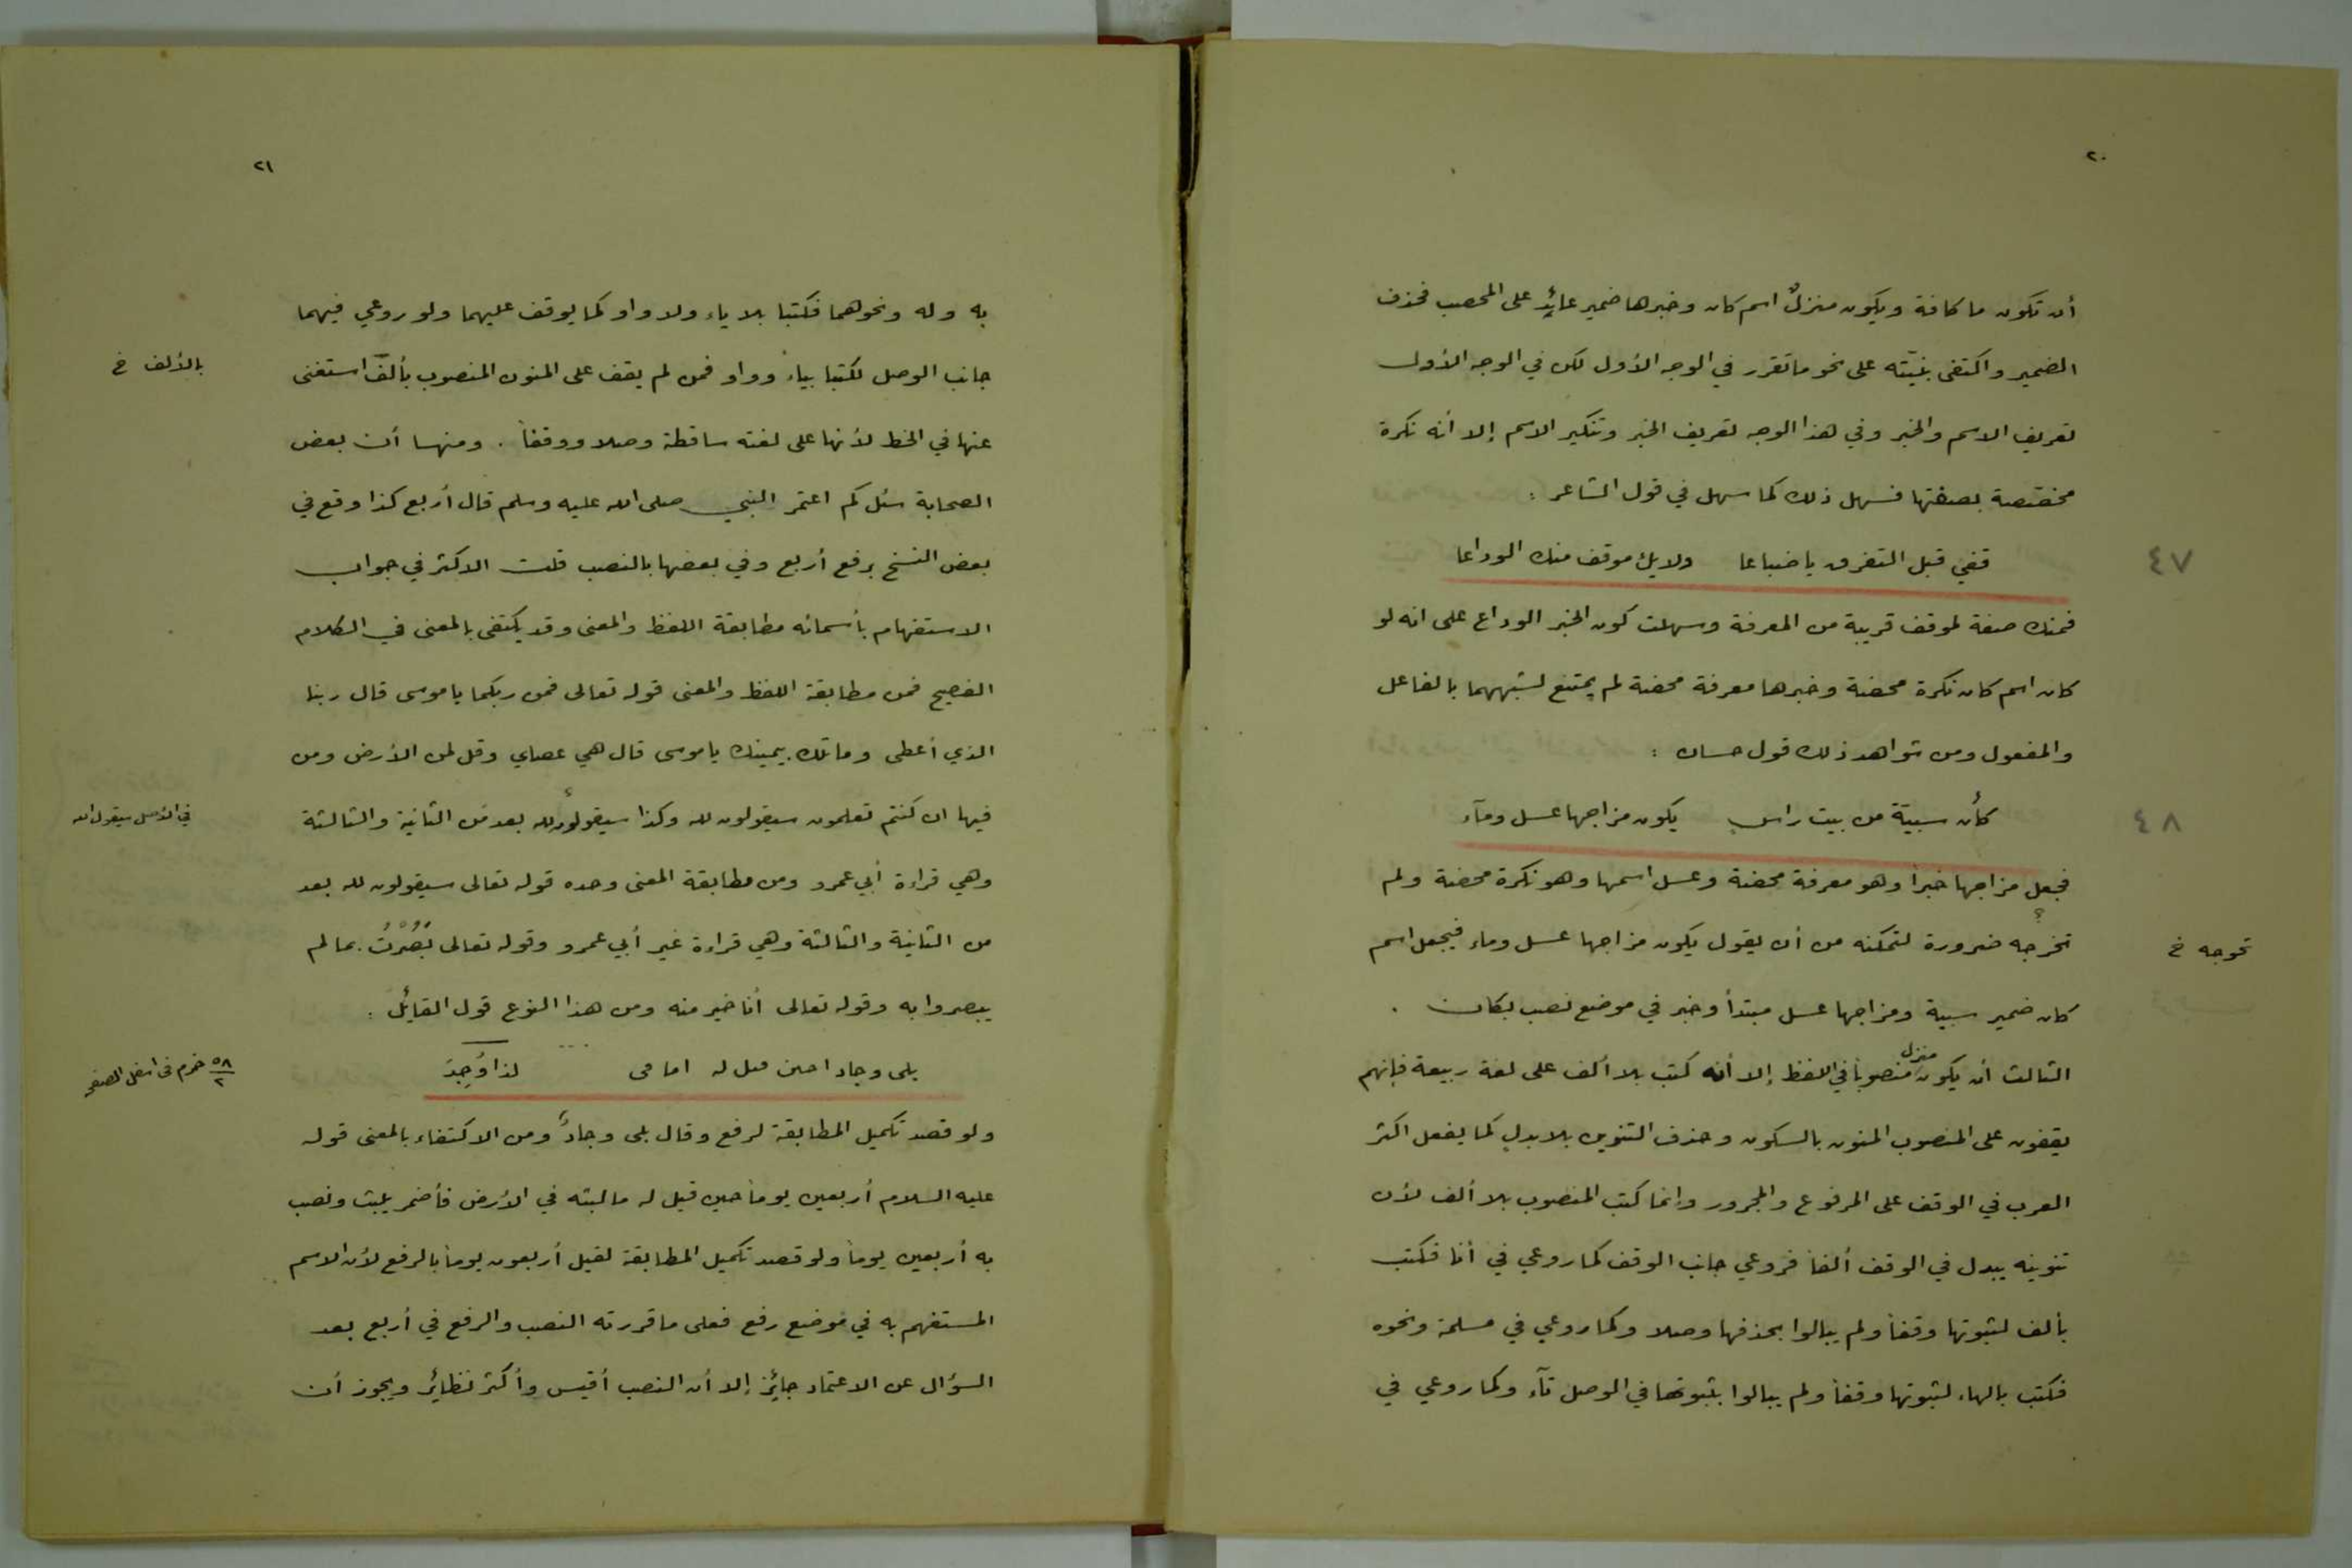 ٢٠
أن تكون ما كافة ويكون منزلٌ اسم كان وخبرها ضمير عائد على المحصب فحذف
الضمير واكتفى بنيّته على نحو ما تقرر في الوجه الأول لكن في الوجه الأول
تعريف الاسم والخبر وفي هذا الوجه تعريف الخبر وتنكير الاسم إلا أنه نكرة
مخصصة بصفتها فسهل ذلك كما سهل في قول الشاعر :
قفي قبل التفرق يا ضباعا ولا يك موقف منك الوداعا
٤٧
فمنك صفة لموقف قريبة من المعرفة وسهلت كون الخبر الوداع على انه لو
كان اسم كان نكرة محضة وخبرها معرفة محضة لم يمتنع لشبههما بالفاعل
والمفعول ومن شواهد ذلك قول حسان :
كأن سبيّة من بيت راس يكون مزاجها عسل ومآء
٤٨
فجعل مزاجها خبرا وهو معرفة محضة وعسل اسمها وهو نكرة محضة ولم
تخرجه ضرورة لتمكنه من أن يقول يكون مزاجها عسل وماء فيجعل اسم
تحوجه خ
كان ضمير سبية ومزاجها عسل مبتدأ وخبر في موضع نصب بكان .
الثالث أن يكون منزل منصوباً في اللفظ إلا أنه كتب بلا ألف على لغة ربيعة فإنهم
يقفون على المنصوب المنون بالسكون وحذف التنوين بلا بدل كما يفعل اكثر
العرب في الوقف على المرفوع والمجرور وإنما كتب المنصوب بلا ألف لأن
تنوينه يبدل في الوقف ألفاً فروعي جانب الوقف كما روعي في أنا فكتب
بألف لثبوتها وقفاً ولم يبالوا بحذفها وصلا وكما روعي في مسلمة ونحوه
فكتب بالهاء لثبوتها وقفاً ولم يبالوا بثبوتها في الوصل تآء وكما روعي في
٢١
به وله ونحوهما فكتبا بلا ياء ولا واو كما يوقف عليهما ولو روعي فيهما
جانب الوصل لكتبا بياء وواو فمن لم يقف على المنون المنصوب بألف استغنى
بالألف خ
عنها في الخط لأنها على لغته ساقطة وصلا ووقفاً . ومنها أن بعض
الصحابة سئل كم اعتمر النبي صلى الله عليه وسلم قال أربع كذا وقع في
بعض النسخ برفع أربع وفي بعضها بالنصب قلت الاكثر في جواب
الاستفهام بأسمائه مطابقة اللفظ والمعنى وقد يكتفى بالمعنى في الكلام
الفصيح فمن مطابقة اللفظ والمعنى قوله تعالى فمن ربكما يا موسى قال ربنا
الذي أعطى وما تلك بيمينك يا موسى قال هي عصاي وقل لمن الأرض ومن
فيها ان كنتم تعلمون سيقولون لله وكذا سيقولون لله بعد من الثانية والثالثة
في الأصل سيقول الله
وهي قراءة أبي عمرو ومن مطابقة المعنى وحده قوله تعالى سيقولون لله بعد
من الثانية والثالثة وهي قراءة غير أبي عمرو وقوله تعالى بَصُرْتُ بما لم
يبصروا به وقوله تعالى أنا خير منه ومن هذا النوع قول القائل :
بلى وجاد احين لذا وُجِدَ
٥٨/٢ خرم في اسفل الصفحة
ولو قصد تكميل المطابقة لرفع وقال بلى وجادٌ ومن الاكتفاء بالمعنى قوله
عليه السلام أربعين يوماً حين قيل له ما لبثه في الأرض فأضمر يلبث ونصب
به أربعين يوماً ولو قصد تكميل المطابقة لقيل أربعون يوماً بالرفع لأن الاسم
المستفهم به في موضع رفع فعلى ما قررته النصب والرفع في أربع بعد
السؤال عن الاعتماد جائز إلا أن النصب أقيس وأكثر نظائر ويجوز أن